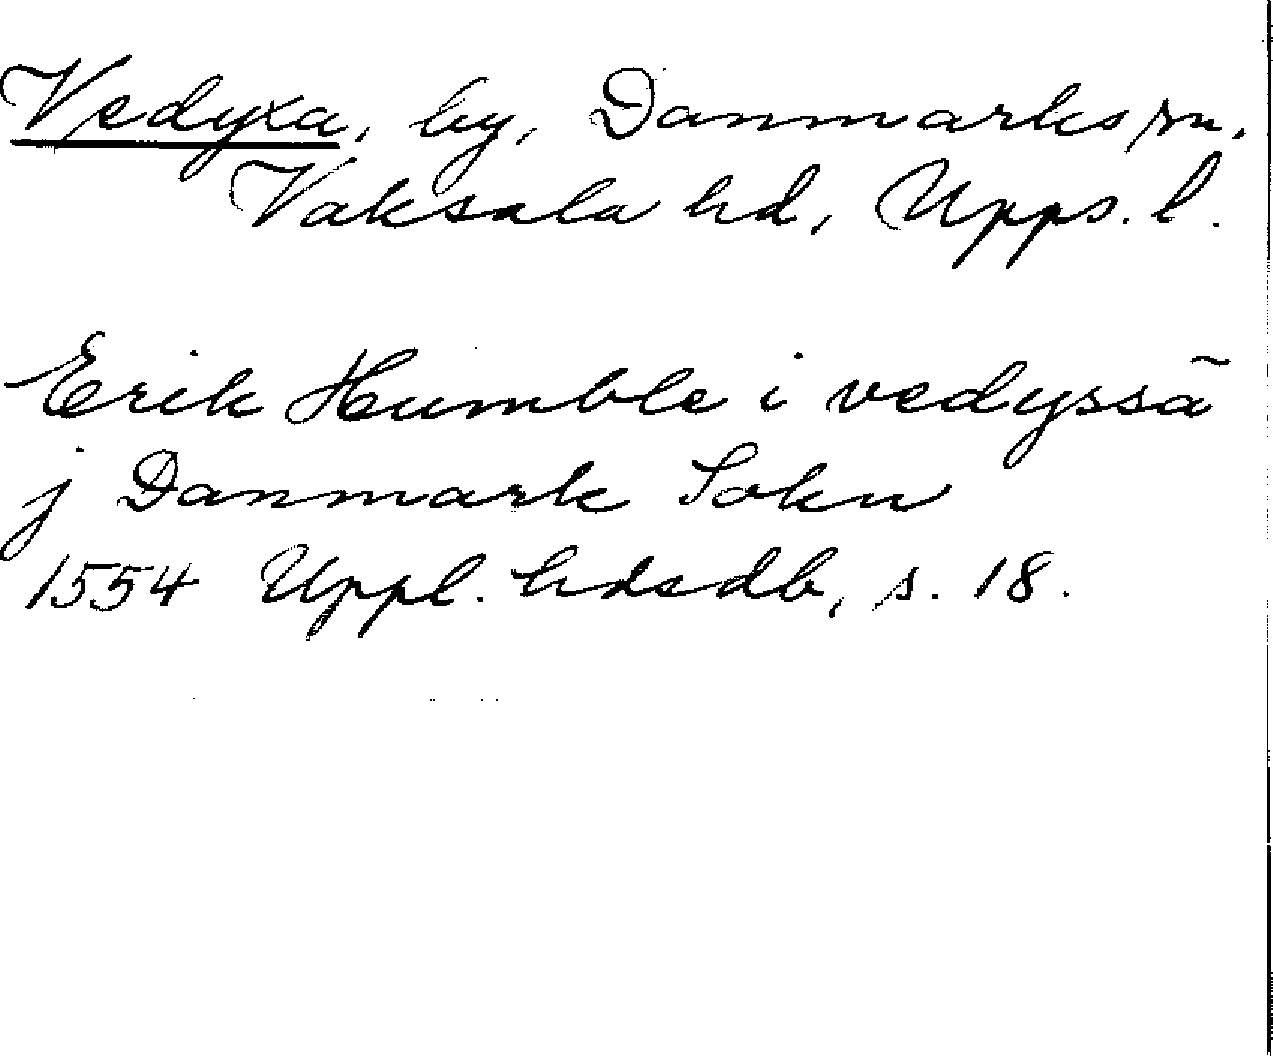 Vedyxa, by, Danmarks sn.
Vaksala hd, Upps. l.
Erik Humble i vedyssā
j Danmark Sokn
1554 Uppl. hdsdb, s. 18.